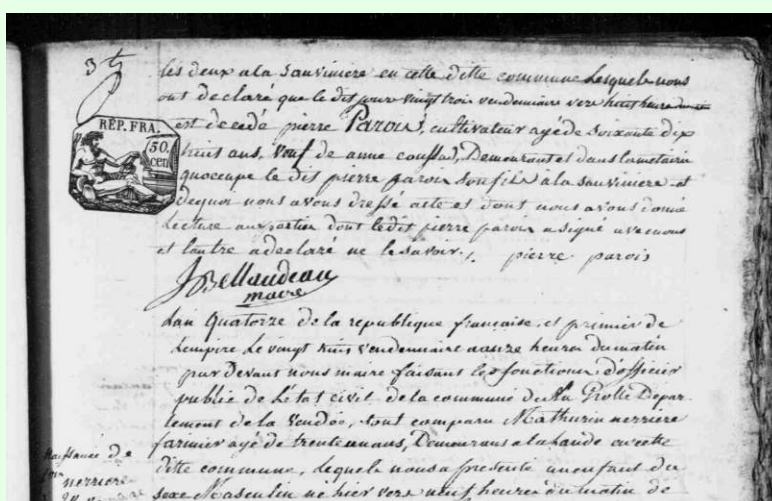 3
les deux a la Sauviniere en cette ditte commune lesquels nous
ont declaré que le dit jour vingt trois vendemiaire vers huit heure
est decedé pierre Parois, cultivateur agé de soixante dix
RÉP. FRA.
50.
cen
huit ans, veuf de anne Demeurant et dans la metairie
quoccupe le dit pierre parois son fils a la Sauviniere et
dequoi nous avons dressé acte et dont nous avons donné
Lecture aux parties dont le dit pierre parois a signé avec nous
et lautre a declaré ne le savoir. pierre parois
maire
Lan Quatorze de la republique française, et premier de
Lempire Le vingt huit vendemiaire a onze heures du matin
par devant nous maire faisant les fonctions d'officier
public de L'etat civil de la commune de Depar
tement de la Vendée, sont comparu Mathurin nerriere
farinier agé de trente un ans, Demeurant a la lande en cette
ditte commune, Lequel nous a presenté un enfant du
sexe Masculin né hier vers neuf heures du matin de
Naissance de
nerriere